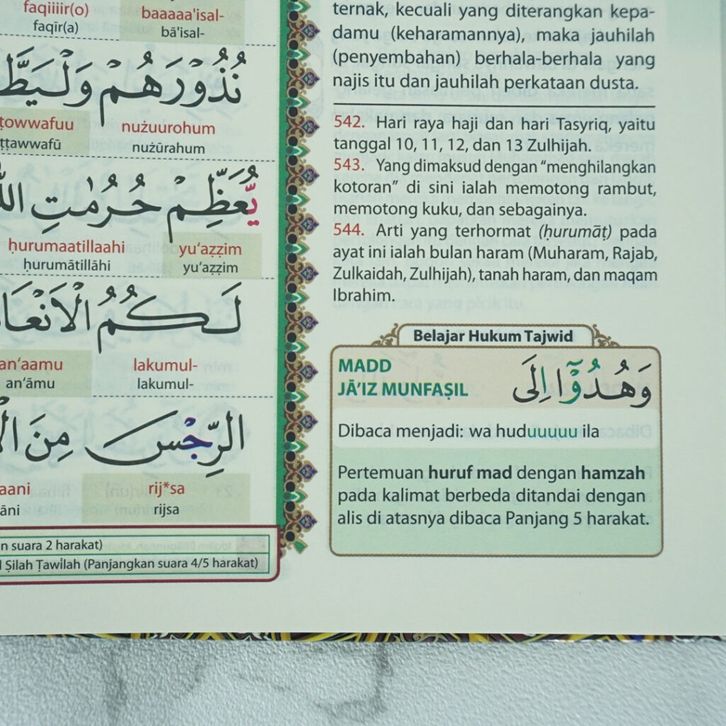 faqiiiir(o) baaaaa'isal-
faqīr(a) bā'isal-
نُذُوْرَهُمْ وَلْيَطَّ
ṭowwafuu nużuurohum
ṭṭawwafū nużūrahum
يُّعَظِّمْ حُرُمٰتِ اللّٰ
ḥurumaatillaahi yu‘aẓẓim
ḥurumātillāhi yu‘aẓẓim
لَكُمُ الْاَنْعَا
an‘aamu lakumul-
an‘āmu lakumul-
الرِّجْسَ مِنَ الْا
aani rij*sa
āni rijsa
n suara 2 harakat)
Ṣilah Ṭawīlah (Panjangkan suara 4/5 harakat)
ternak, kecuali yang diterangkan kepa-
damu (keharamannya), maka jauhilah
(penyembahan) berhala-berhala yang
najis itu dan jauhilah perkataan dusta.
542. Hari raya haji dan hari Tasyriq, yaitu
tanggal 10, 11, 12, dan 13 Zulhijah.
543. Yang dimaksud dengan “menghilangkan
kotoran” di sini ialah memotong rambut,
memotong kuku, dan sebagainya.
544. Arti yang terhormat (ḥurumāṭ) pada
ayat ini ialah bulan haram (Muharam, Rajab,
Zulkaidah, Zulhijah), tanah haram, dan maqam
Ibrahim.
Belajar Hukum Tajwid
MADD
JĀ’IZ MUNFAṢIL
وَهُدُوْٓا اِلَى
Dibaca menjadi: wa huduuuuu ila
Pertemuan huruf mad dengan hamzah
pada kalimat berbeda ditandai dengan
alis di atasnya dibaca Panjang 5 harakat.